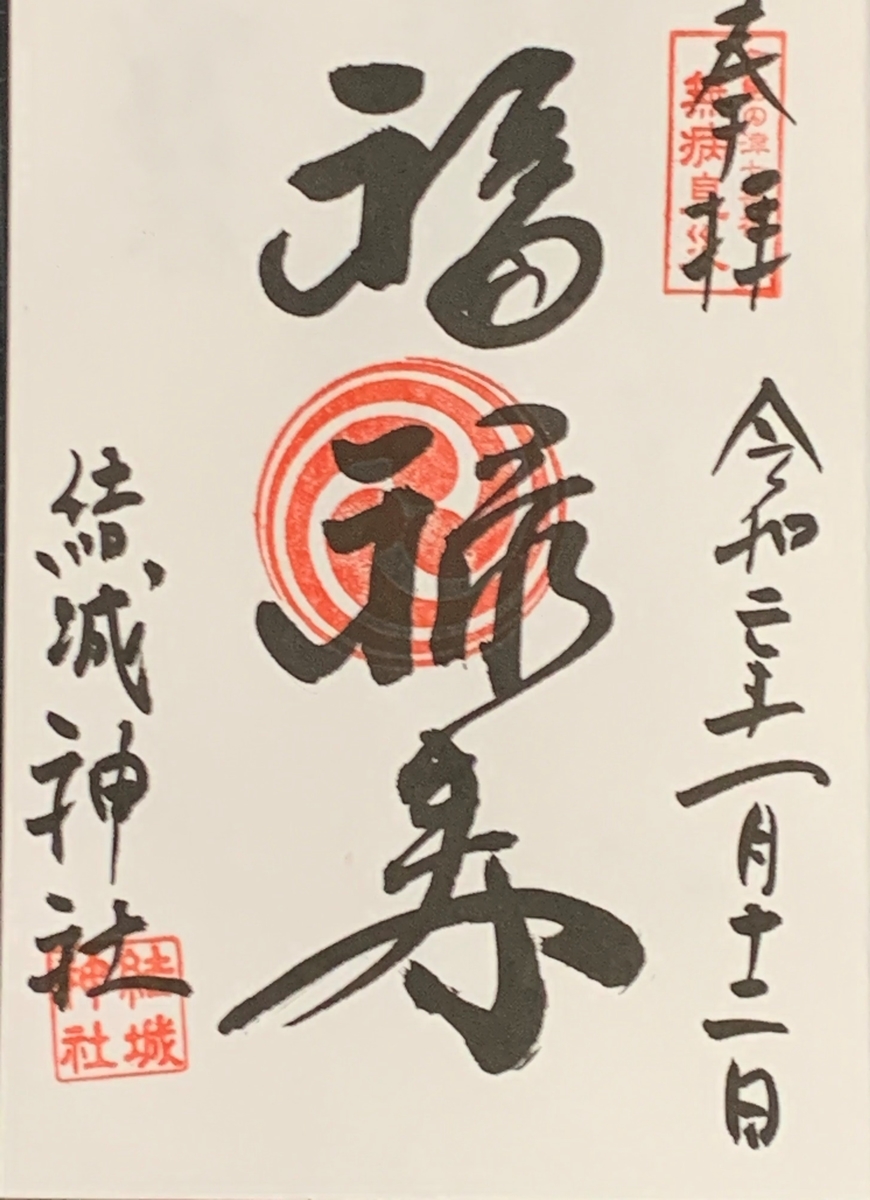 奉拝
無病息災
令和二年一月十二日
福禄寿
結城神社
結城
神社